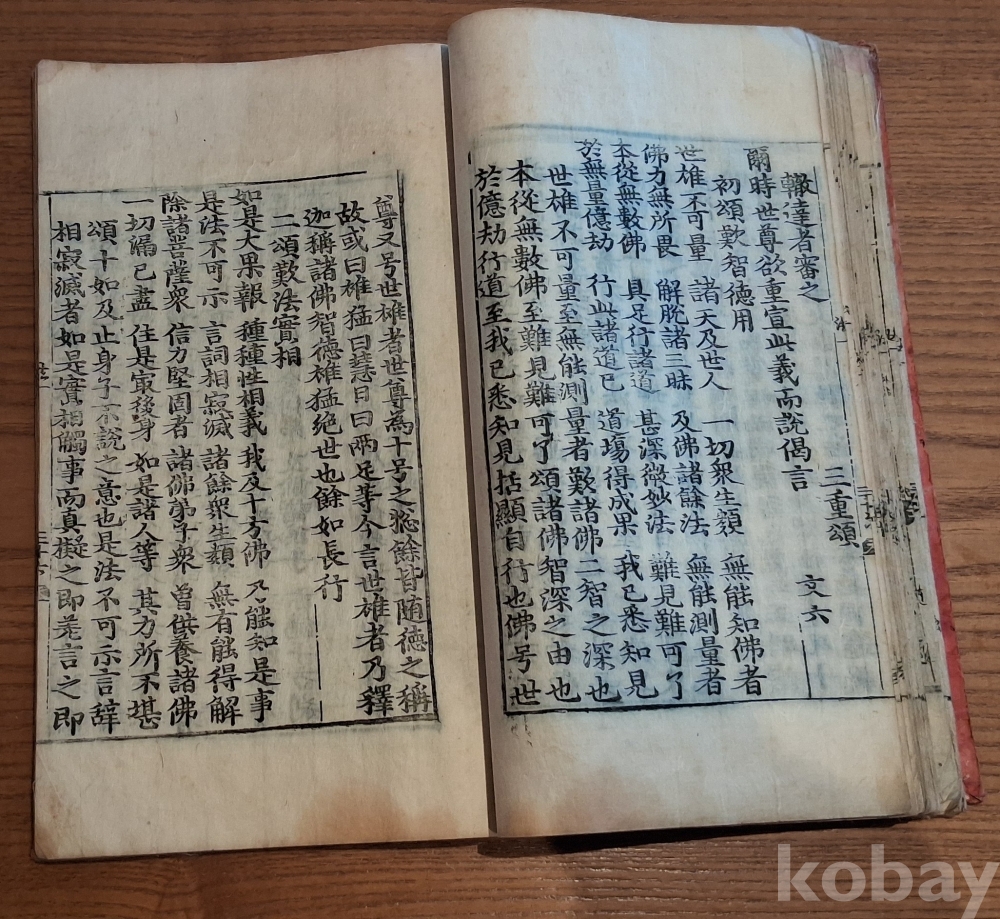 轍達者審之 三重頌 文六
爾時世尊欲重宣此義而說偈言
初頌歎智德用
世雄不可量 諸天及世人 一切衆生類 無能知佛者
佛力無所畏 解脫諸三昧 及佛諸餘法 無能測量者
本從無數佛 具足行諸道 甚深微妙法 難見難可了
於無量億劫 行此諸道已 道場得成果 我已悉知見
世雄不可量至無能測量者歎諸佛二智之深也
本從無數佛至難見難可了頌諸佛智深之由也
於億劫行道至我已悉知見括顯自行也佛号世
尊又号世雄者世尊為十号之揔餘皆随德之稱
故或曰雄猛曰慧日曰兩足等今言世雄者乃釋
迦稱諸佛智德雄猛絶世也餘如長行
二頌歎法實相
如是大果報 種種性相義 我及十方佛 乃能知是事
是法不可示 言詞相寂滅 諸餘衆生類 無有能得解
除諸菩薩衆 信力堅固者 諸佛弟子衆 曾供養諸佛
一切漏已盡 住是最後身 如是諸人等 其力所不堪
頌十如及止身子不說之意也是法不可示言辞
相寂滅者如是實相觸事而真擬之即差言之即
kobay